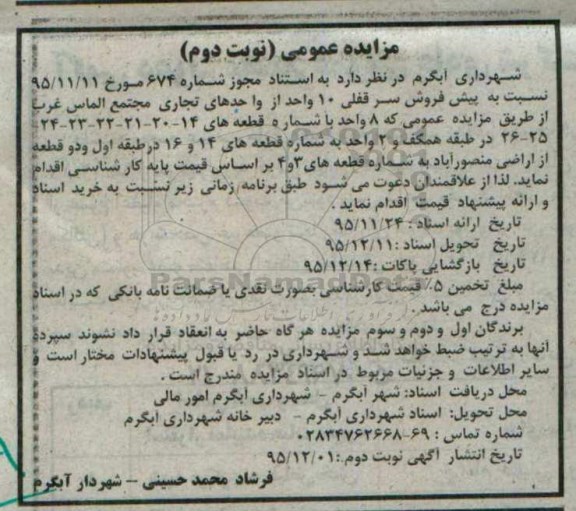 مزایده عمومی (نوبت دوم)
شهرداری آبگرم در نظر دارد به استناد مجوز شماره ۶۷۴ مورخ ۹۵/۱۱/۱۱
نسبت به پیش فروش سر قفلی ۱۰ واحد از واحدهای تجاری مجتمع الماس غرب
از طریق مزایده عمومی که ۸ واحد با شماره قطعه های ۱۴-۲۰-۲۱-۲۲-۲۳-۲۴-
۲۵-۲۶ در طبقه همکف و ۲ واحد به شماره قطعه های ۱۴ و ۱۶ درطبقه اول ودو قطعه
از اراضی منصورآباد به شماره قطعه های۳و۴ بر اساس قیمت پایه کار شناسی اقدام
نماید. لذا از علاقمندان دعوت می شود طبق برنامه زمانی زیر نسبت به خرید اسناد
و ارائه پیشنهاد قیمت اقدام نماید .
تاریخ ارائه اسناد : ۹۵/۱۱/۲۴
تاریخ تحویل اسناد :۹۵/۱۲/۱۱
تاریخ بازگشایی پاکات :۹۵/۱۲/۱۴
مبلغ تخمین ۵٪ قیمت کارشناسی بصورت نقدی یا ضمانت نامه بانکی که در اسناد
مزایده درج می باشد .
برندگان اول و دوم و سوم مزایده هر گاه حاضر به انعقاد قرار داد نشوند سپرده
آنها به ترتیب ضبط خواهد شد و شهرداری در رد یا قبول پیشنهادات مختار است و
سایر اطلاعات و جزئیات مربوط در اسناد مزایده مندرج است .
محل دریافت اسناد: شهر آبگرم - شهرداری آبگرم امور مالی
محل تحویل: اسناد شهرداری آبگرم - دبیر خانه شهرداری آبگرم
شماره تماس : ۶۹-۰۲۸۳۴۷۶۲۶۶۸
تاریخ انتشار آگهی نوبت دوم:۹۵/۱۲/۰۱
فرشاد محمد حسینی - شهردار آبگرم